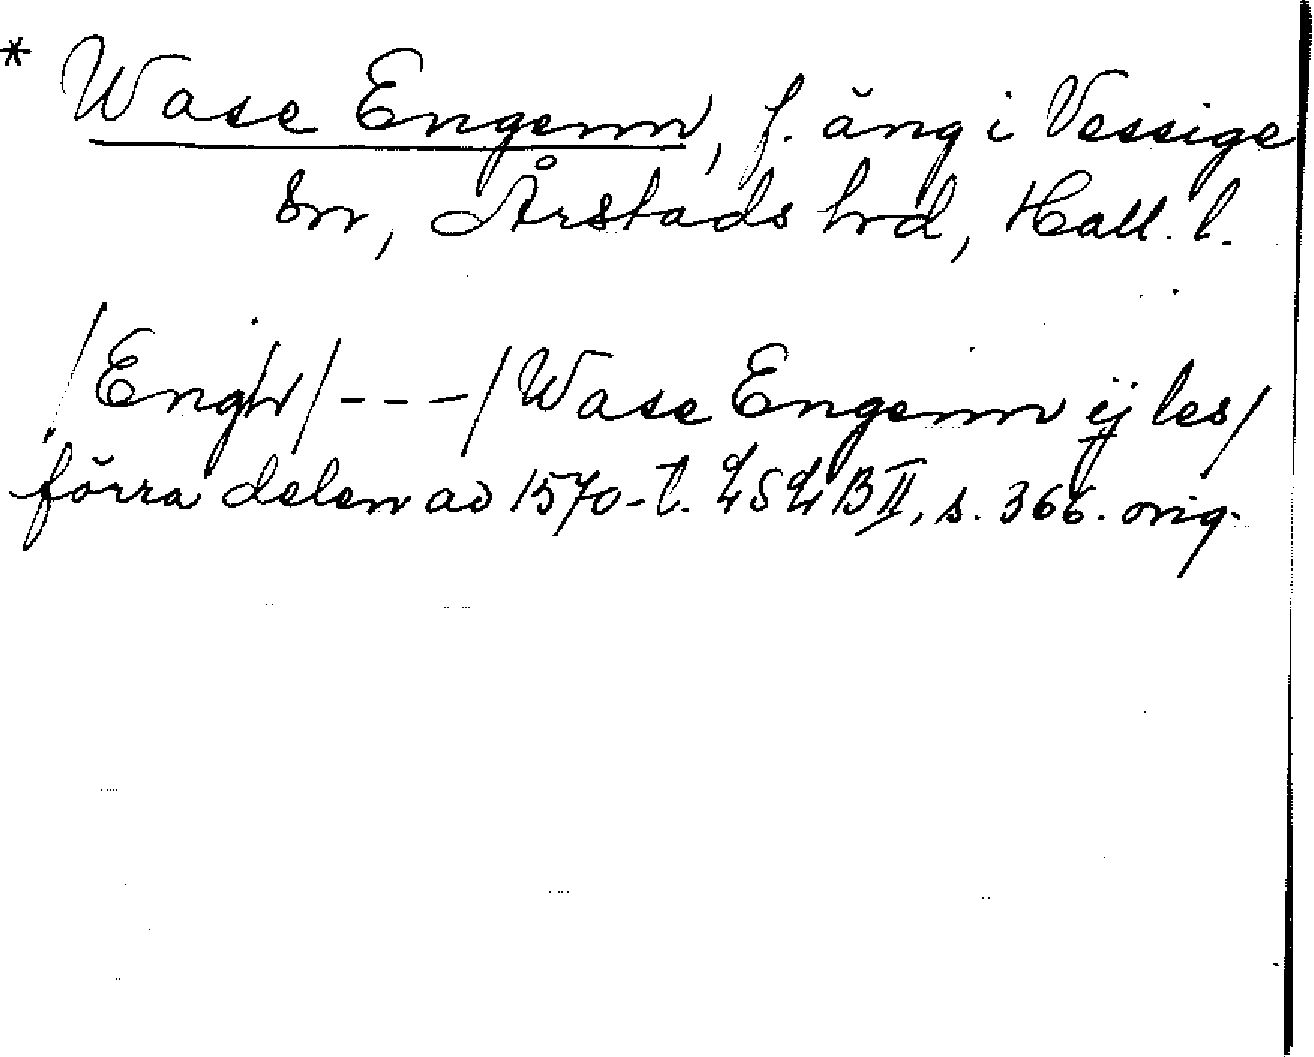 * Wase Engenn, f. äng i Vessige
sn, Årstads hrd, Hall. l.
/Engh/ --- /Wase Engenn ej les/
förra delen av 1570-t. LSLB II, s. 366. orig.